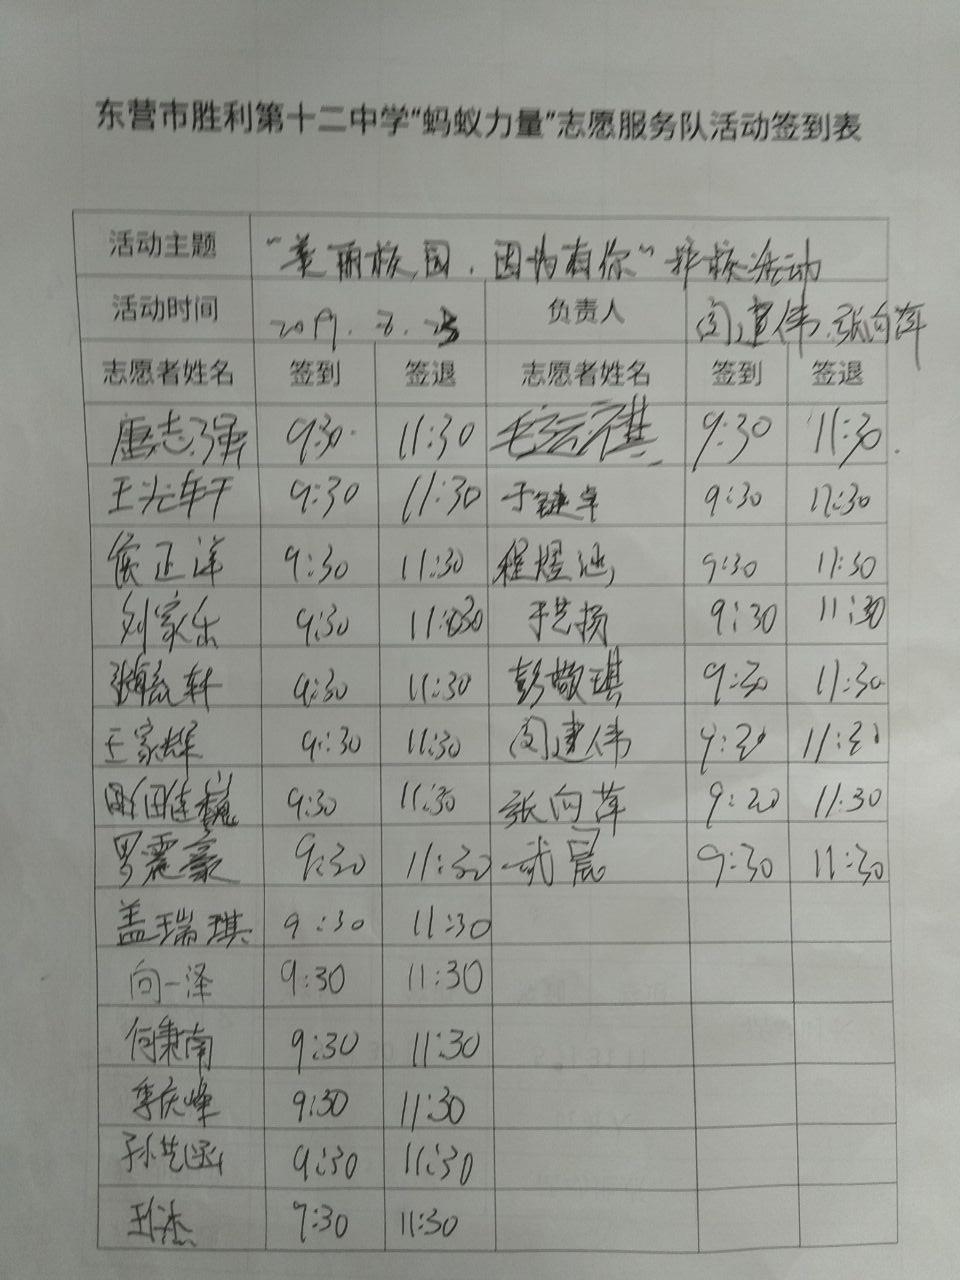 东营市胜利第十二中学“蚂蚁力量”志愿服务队活动签到表
活动主题 “美丽校园，因为有你”护校活动
活动时间 2019. 负责人 闫建伟、张向萍
志愿者姓名 签到 签退 志愿者姓名 签到 签退
唐志强 9:30 11:30 9:30 11:30
9:30 11:30 9:30 11:30
侯正洋 9:30 11:30 程煜涵 9:30 11:30
刘家乐 9:30 11:30 于艺扬 9:30 11:30
9:30 11:30 彭敬琪 9:30 11:30
王家雄 9:30 11:30 闫建伟 9:30 11:30
9:30 11:30 张向萍 9:20 11:30
罗震豪 9:30 11:30 武晨 9:30 11:30
盖瑞琪 9:30 11:30
向一泽 9:30 11:30
何秉南 9:30 11:30
李庆峰 9:30 11:30
孙艺涵 9:30 11:30
9:30 11:30